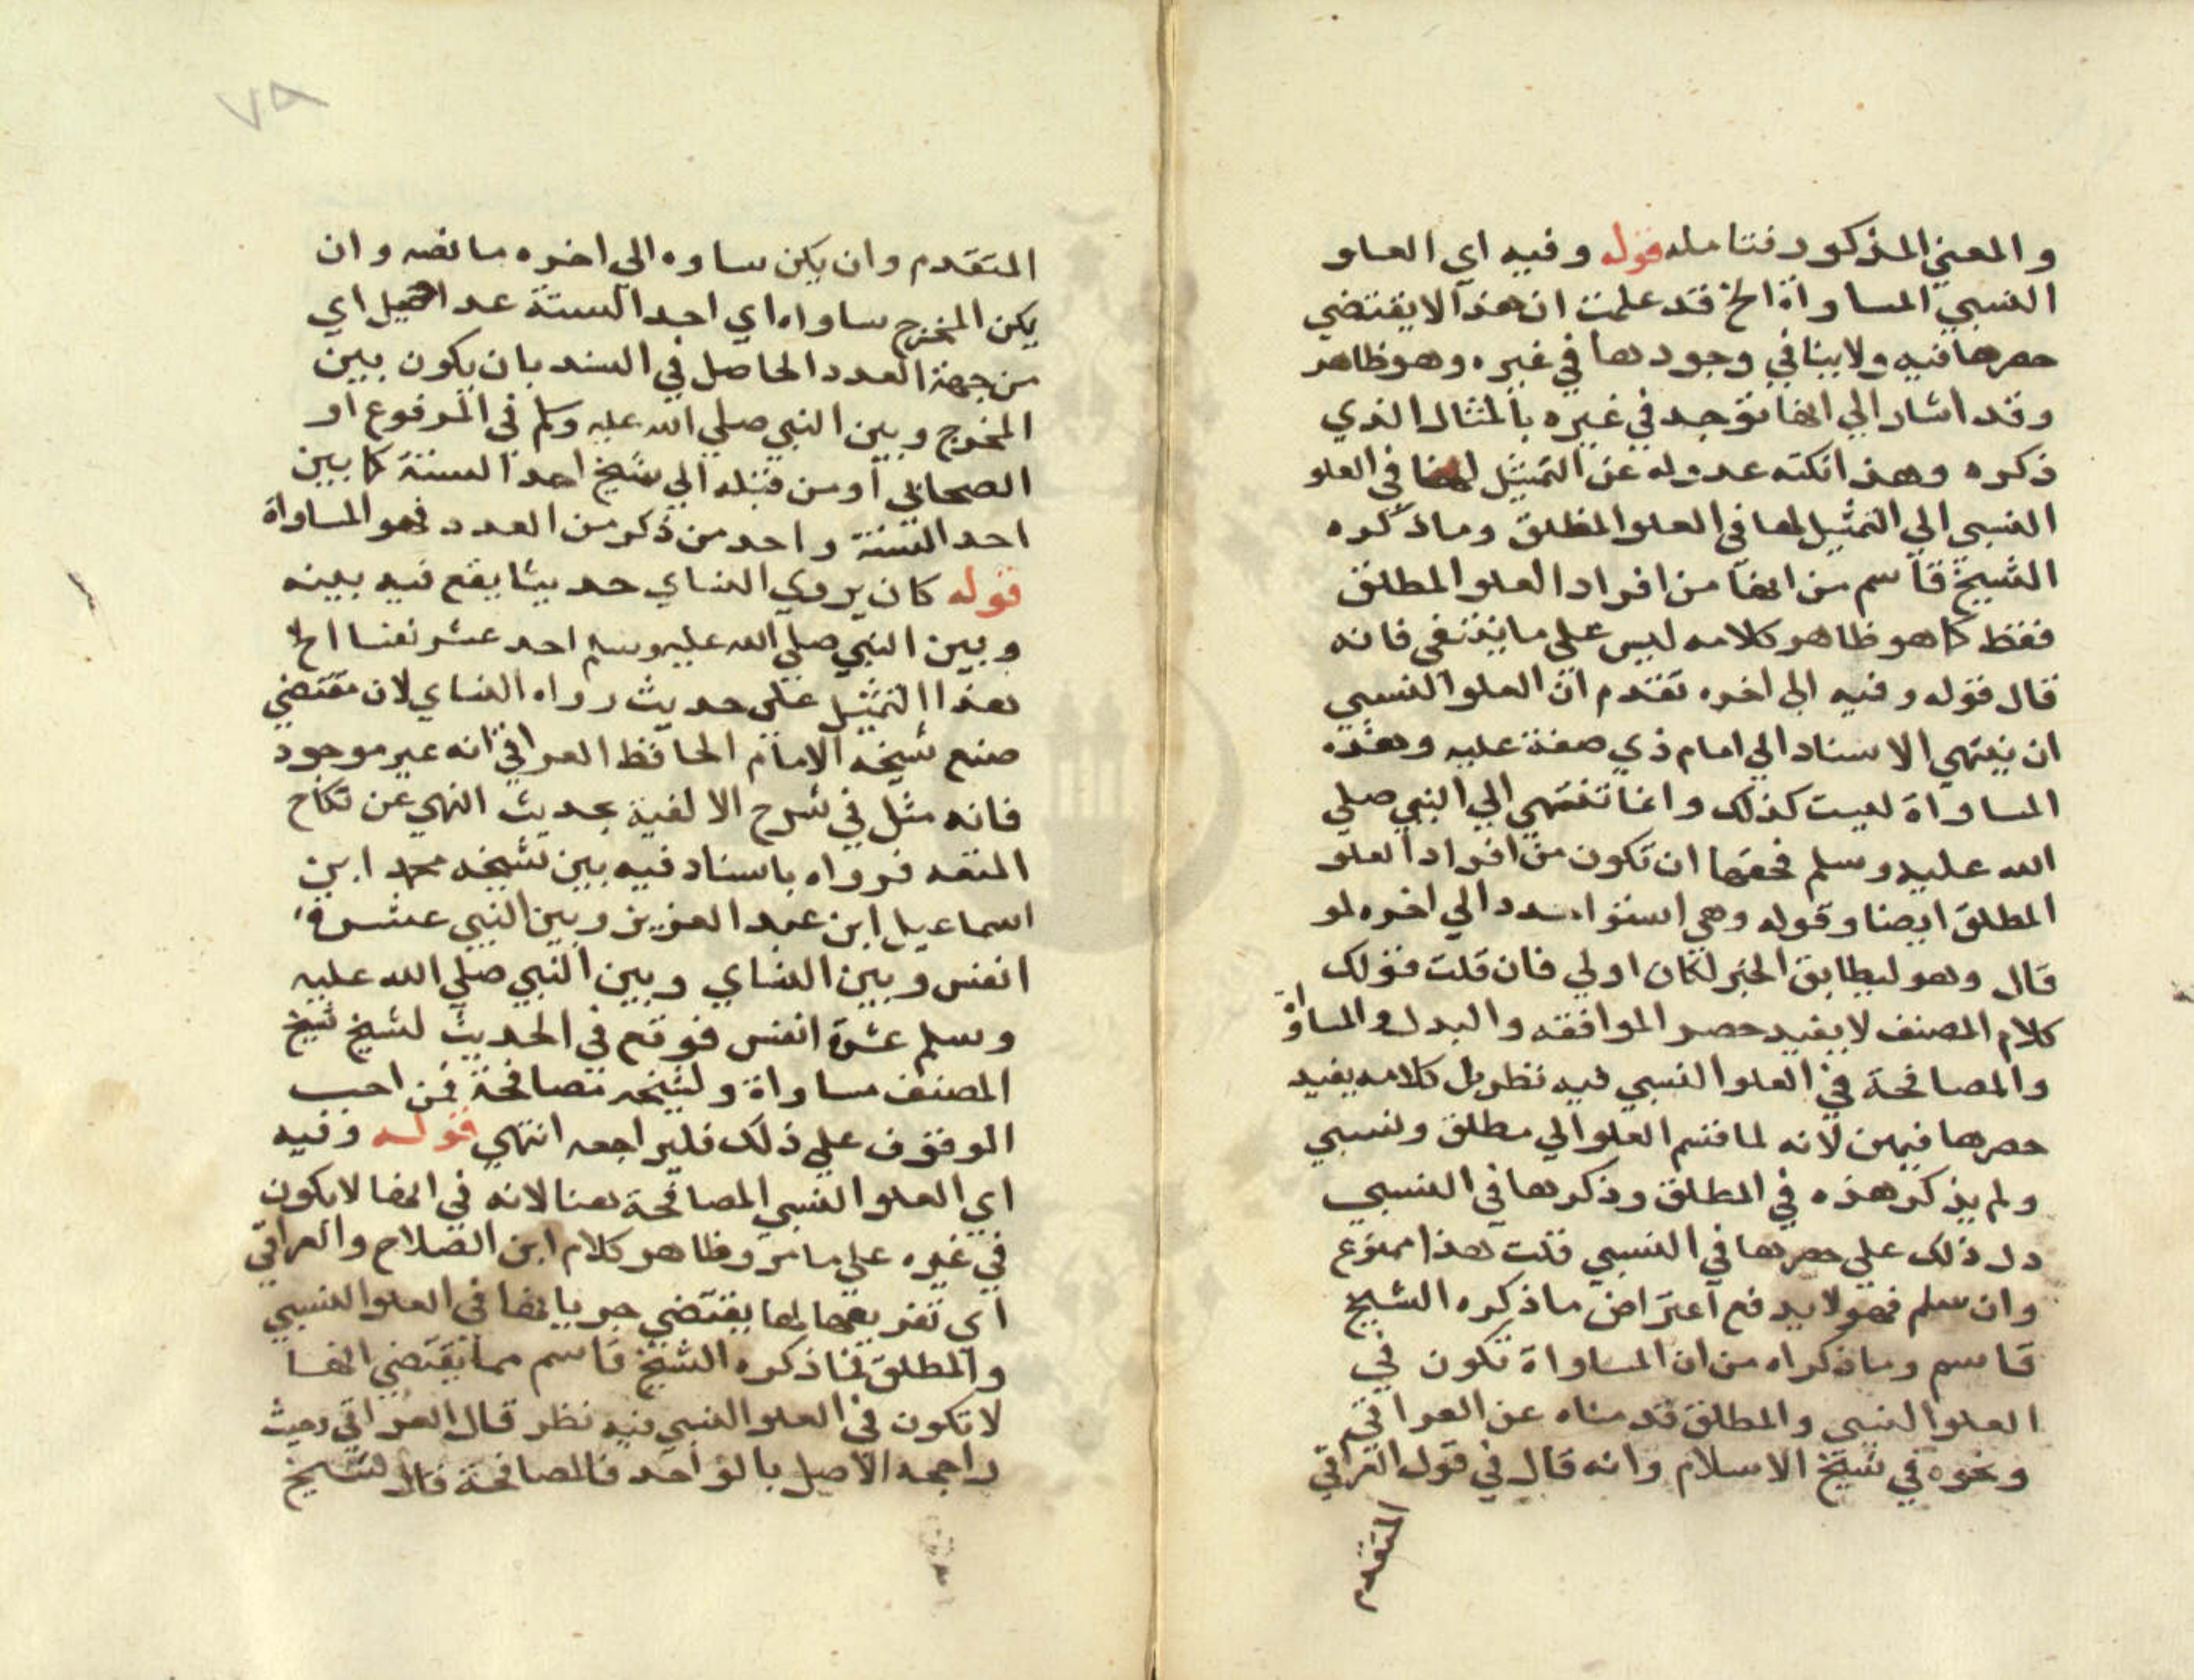 والمعني المذكور فتامله قوله وفيه اي العلو
النسبي المساواة الخ قد علمت ان هذا لا يقتضي
حصرها فيه ولا ينافي وجودها في غيره وهو ظاهر
وقد اشار الي انها توجد في غيره بالمثال الذي
ذكره وهذا نكتة عدوله عن التمثيل لها في العلو
النسبي الي التمثيل لها في العلو المطلق وما ذكره
الشيخ قاسم من انها من افراد العلو المطلق
فقط كما هو ظاهر كلامه ليس علي ما ينبغي فانه
قال قوله وفيه الي اخره تقدم ان العلو النسبي
ان ينتهي الاسناد الي امام ذي صفة علية وهذه
المساواة ليست كذلك وانما تنتهي الي النبي صلي
الله عليه وسلم فحقها ان تكون من افراد العلو
المطلق ايضا وقوله وهي استوا عدد الي اخره لو
قال وهو ليطابق الخبر لكان اولي فان قلت قولك
كلام المصنف لا يفيد حصر الموافقه والبدل والمساواة
والمصافحة في العلو النسبي فيه نظر بل كلامه يفيد
حصرها فيهن لانه لما قسم العلو الي مطلق ونسبي
ولم يذكر هذه في المطلق وذكرها في النسبي
دل ذلك علي حصرها في النسبي قلت هذا ممنوع
وان سلم فهو لا يدفع اعتراض ما ذكره الشيخ
قاسم وما ذكراه من ان المساواة تكون في
العلو النسبي والمطلق قدمناه عن العراقي
ونحوه في شيخ الاسلام وانه قال في قول العراقي
المتقدم
٧٨
المتقدم وان يكن ساوه الي اخره ما نصه وان
يكن المخرج ساواه اي احد الستة عدا اي
من جهة العدد الحاصل في السند بان يكون بين
المخرج وبين النبي صلي الله عليه وسلم في المرفوع او
الصحابي او من قبله الي شيخ احد الستة كما بين
احد الستة واحد من ذكر من العدد فهو المساواة
قوله كان يروي النساي حديثا يقع فيه بينه
وبين النبي صلي الله عليه وسلم احد عشر نفسا الخ
هذا التمثيل علي حديث رواه النساي لان مقتضي
صنع شيخه الامام الحافظ العراقي انه غير موجود
فانه مثل في شرح الالفية بحديث النهي عن نكاح
المتعه فرواه باسناد فيه بين شيخه محمد ابن
اسماعيل ابن عبد العزيز وبين النبي عشرة
انفس وبين النساي وبين النبي صلي الله عليه
وسلم عشرة انفس فوقع في الحديث لشيخ شيخ
المصنف مساواة ولشيخه مصافحة فمن احب
الوقوف علي ذلك فليراجعه انتهي قوله وفيه
اي العلو النسبي المصافحة هنا لانه في انها لا يكون
في غيره علي ما مر وظاهر كلام ابن الصلاح والعراقي
اي تفريعها لها يقتضي جريانها في العلو النسبي
والمطلق فما ذكره الشيخ قاسم مما يقتضي انها
لا تكون في العلو النسبي فيه نظر قال العراقي وحيث
راجحه الاصل بالواحد فالمصافحة قال الشيخ